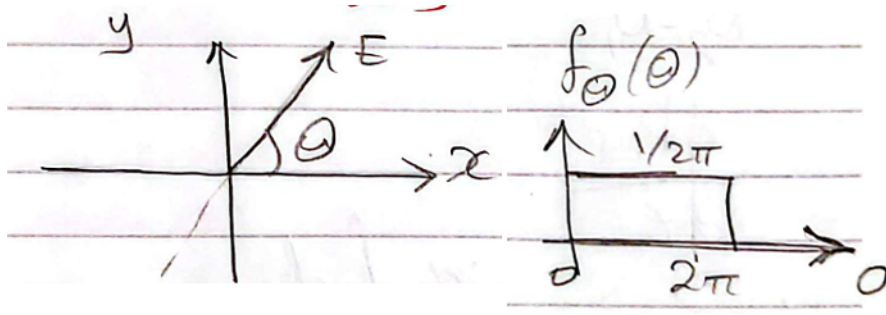 y
E
Θ
x
f_Θ(Θ)
1/2π
0
2π
0